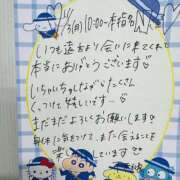 /3(日)10:00〜本指名
いつも遠方より会いに来てくれて
本当にありがとうございます♡
いちゃいちゃしながらたくさん
くっつけて嬉しいです…♡
まだまだよろお願いします!
身体に気をつけて、また会えることを
楽しみしています♡